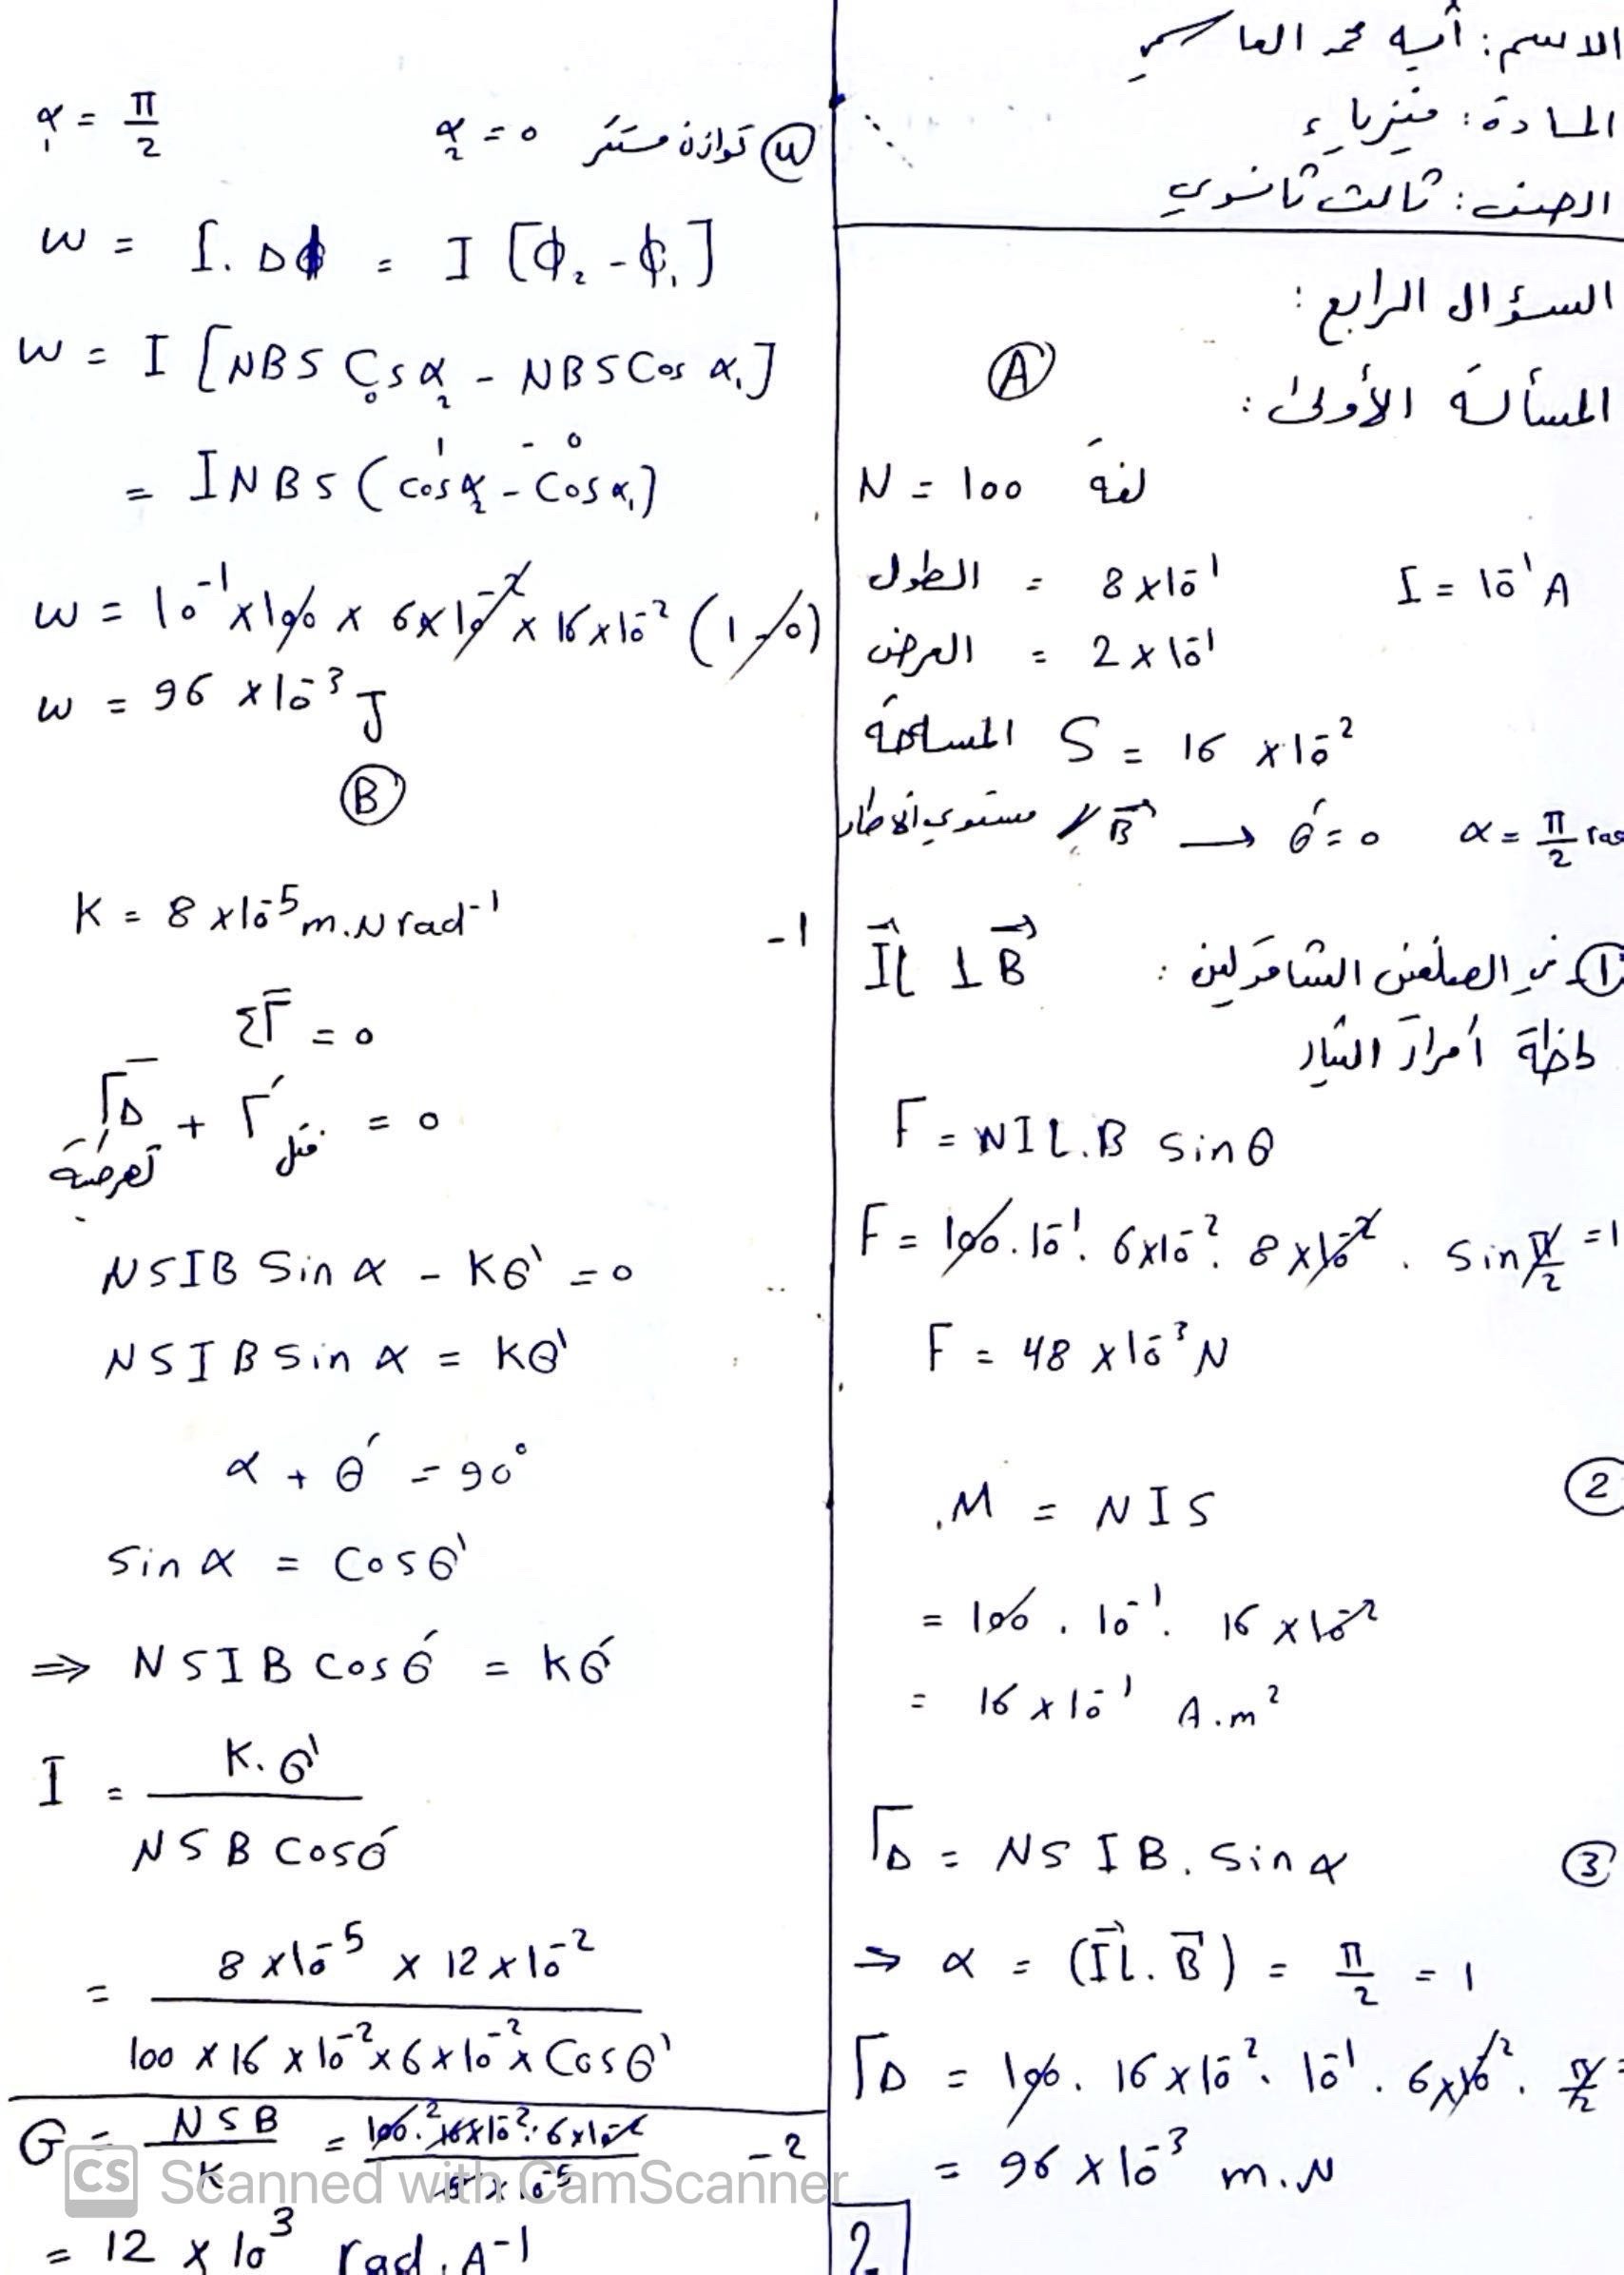 الاسم: آيه محمد العا
المادة: فيزياء
الصف: ثالث ثانوي
السؤال الرابع:
المسألة الأولى:
A
N = 100 لفة
الطول = 8×10⁻¹ I = 10⁻¹ A
العرض = 2×10⁻¹
المساحة S = 16 ×10⁻²
مستوي الاطار // B⃗ → θ́ = 0 α = π/2 rad
① في الضلعين الشاقوليين: I⃗L ⊥ B⃗
لحظة أمرار التيار
F = NIL.B sinθ
F = 100.10⁻¹. 6×10⁻². 8×10⁻² . Sin π/2 = 1
F = 48 ×10⁻³ N
②
M = NIS
= 100 . 10⁻¹. 16 ×10⁻²
= 16 ×10⁻¹ A.m²
③
ΓΔ = NS I B. Sin α
⇒ α = (I⃗L. B⃗) = π/2 = 1
ΓΔ = 100. 16×10⁻². 10⁻¹. 6×10⁻². π/2 =
= 96 ×10⁻³ m.N
2
④ توازن مستقر α₂ = 0 α₁ = π/2
W = I. Δϕ = I [ϕ₂ - ϕ₁]
W = I [NBS Cos α₂ - NBS Cos α₁]
1 - 0
= INBS (cos α₂ - Cos α₁)
W = 10⁻¹×100 × 6×10⁻² × 16×10⁻² (1-0)
W = 96 ×10⁻³ J
B
-1
K = 8 ×10⁻⁵ m.N rad⁻¹
ΣΓ̄ = 0
Γ̄Δ + Γ́ فتل = 0
NSIB Sin α - Kθ' = 0
NSIB Sin α = Kθ'
α + θ́ = 90°
Sin α = Cosθ'
⇒ NSIB Cosθ́ = Kθ́
I = K.θ' / NSB Cosθ́
= 8×10⁻⁵ × 12×10⁻² / 100 × 16 ×10⁻² × 6×10⁻² × Cosθ'
-2
G = NSB / K = 100. 16×10⁻². 6×10⁻² / 8×10⁻⁵
= 12 × 10³ rad. A⁻¹
CS Scanned with CamScanner